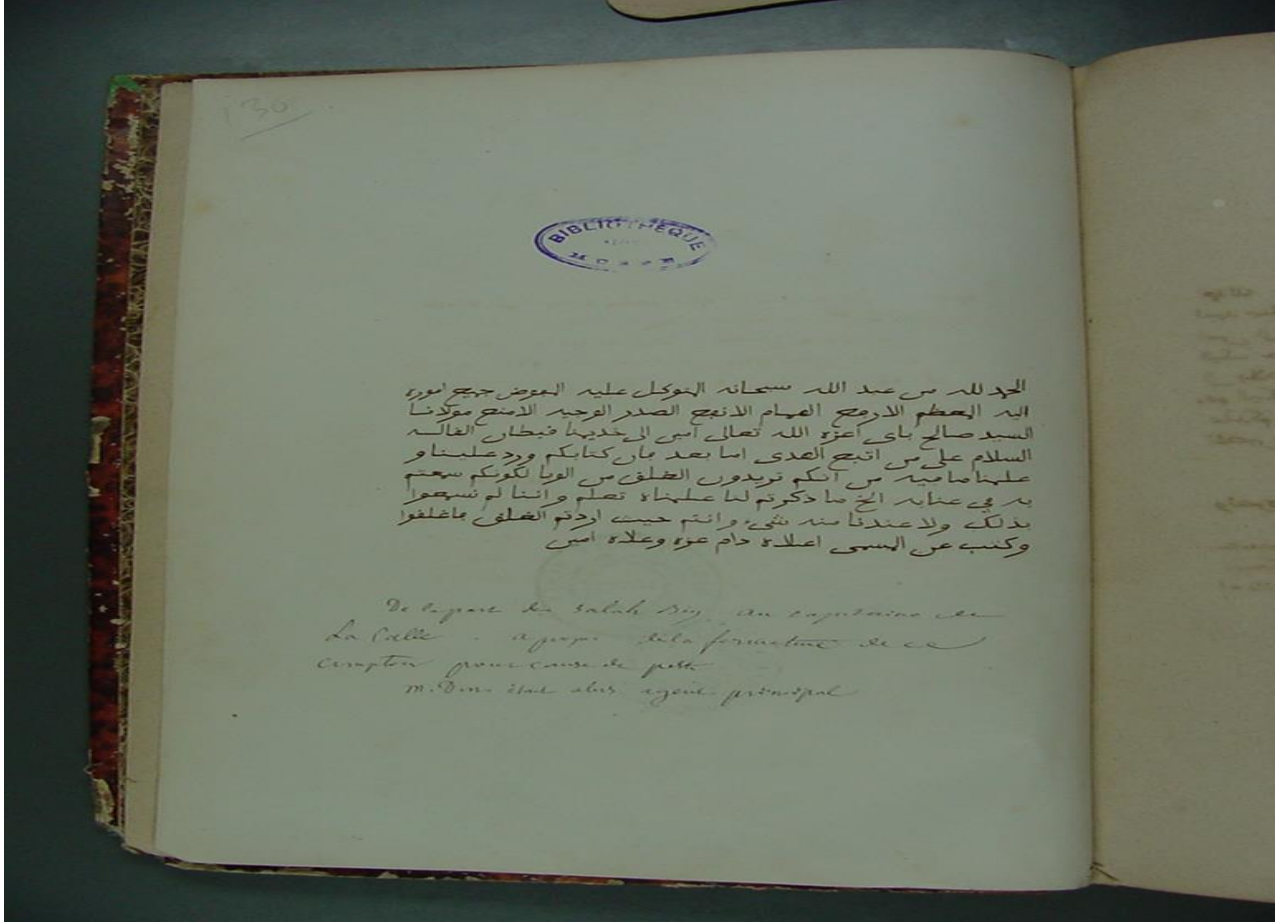 130
BIBLIOTHEQUE
الحمد لله من عبد الله سبحانه المتوكل عليه المفوض جميع اموره
اليه المعظم الارفع الهمام الانفع الصدر الوجيه الامنع مولانا
السيد صالح باي اعزه الله تعالى امين الى خديمنا قبطان القالــه
السلام على من اتبع الهدى اما بعد فان كتابكم ورد علينا و
علمنا ما فيه من انكم تريدون الغلق من الوبا لكونكم سمعتم
به في عنابه الخ ما ذكرتم لنا علمناه تعلم واننا لم نسمعوا
بذلك ولا عندنا منه شيء وانتم حيث اردتم الغلق فاغلقوا
وكتب عن المسمى اعلاه دام عزه وعلاه امين
De la part de Salah Bey, au capitaine de
La Calle. a propos de la fermeture de ce
comptoir pour cause de peste
M. Don était alors agent principal